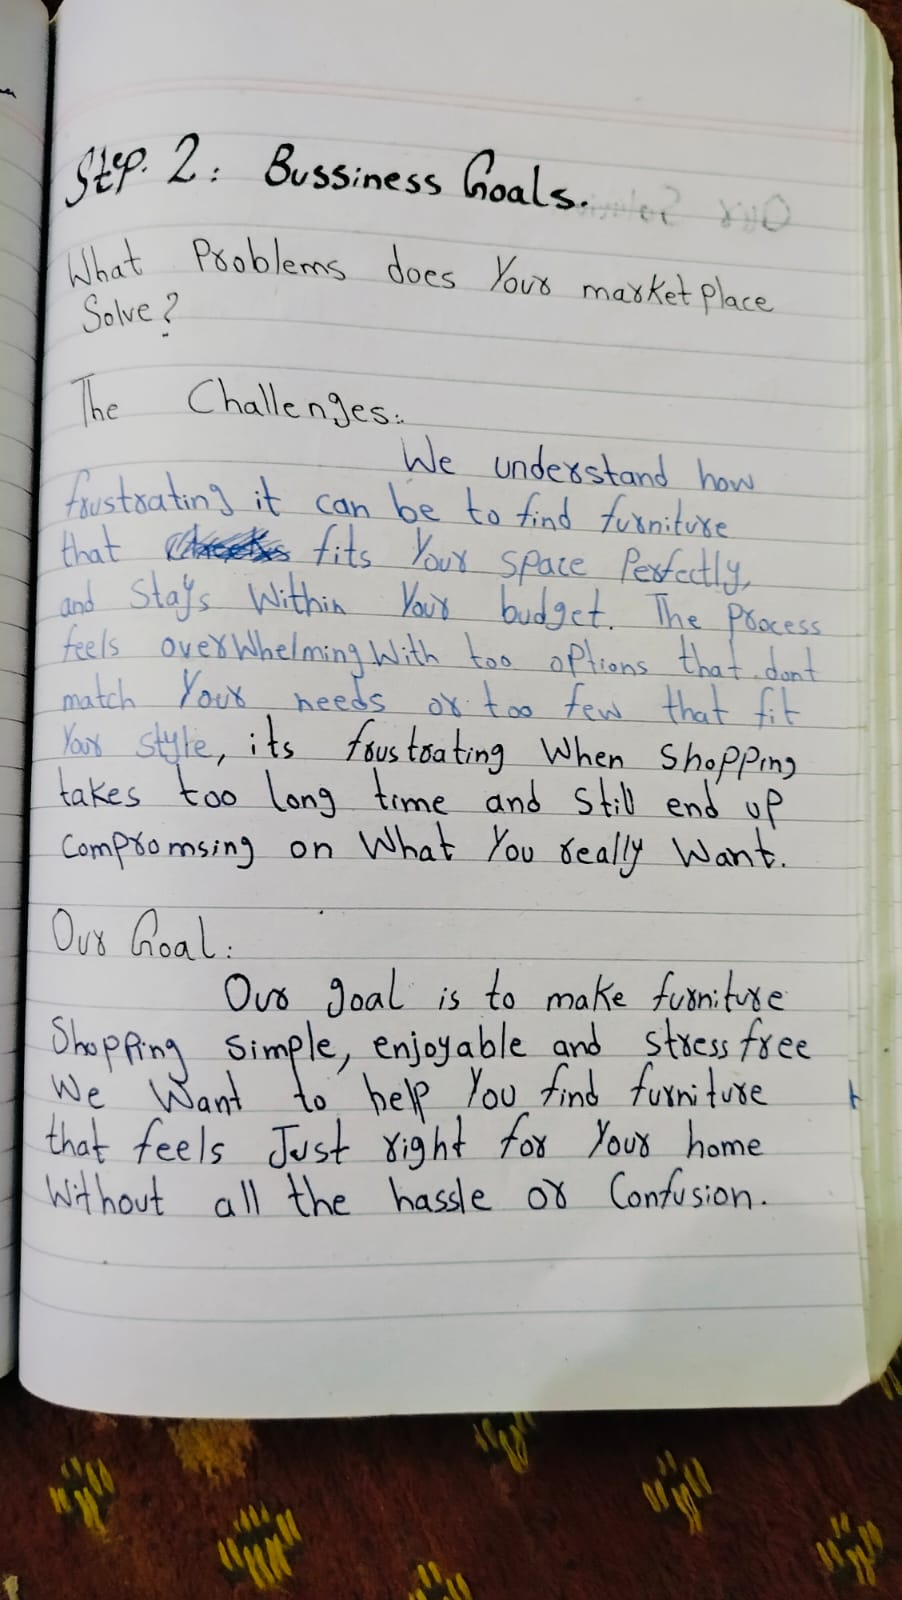 Step. 2: Bussiness Goals.
What Problems does Your marketplace
Solve?
The Challenges:
We understand how
frustrating it can be to find furniture
that fits Your space Perfectly,
and Stays Within Your budget. The Process
feels overWhelming With too options that dont
match Your needs or too few that fit
Your style, its frustrating When Shopping
takes too long time and Still end up
Compromsing on What You really Want.
Our Goal:
Our goal is to make furniture
Shopping simple, enjoyable and stress free
We Want to help You find furniture
that feels Just right for Your home
Without all the hassle or Confusion.